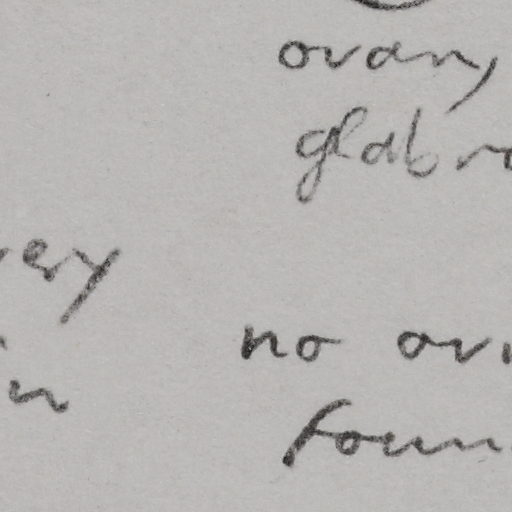 ovary
glabro
very
no ov
in
foun